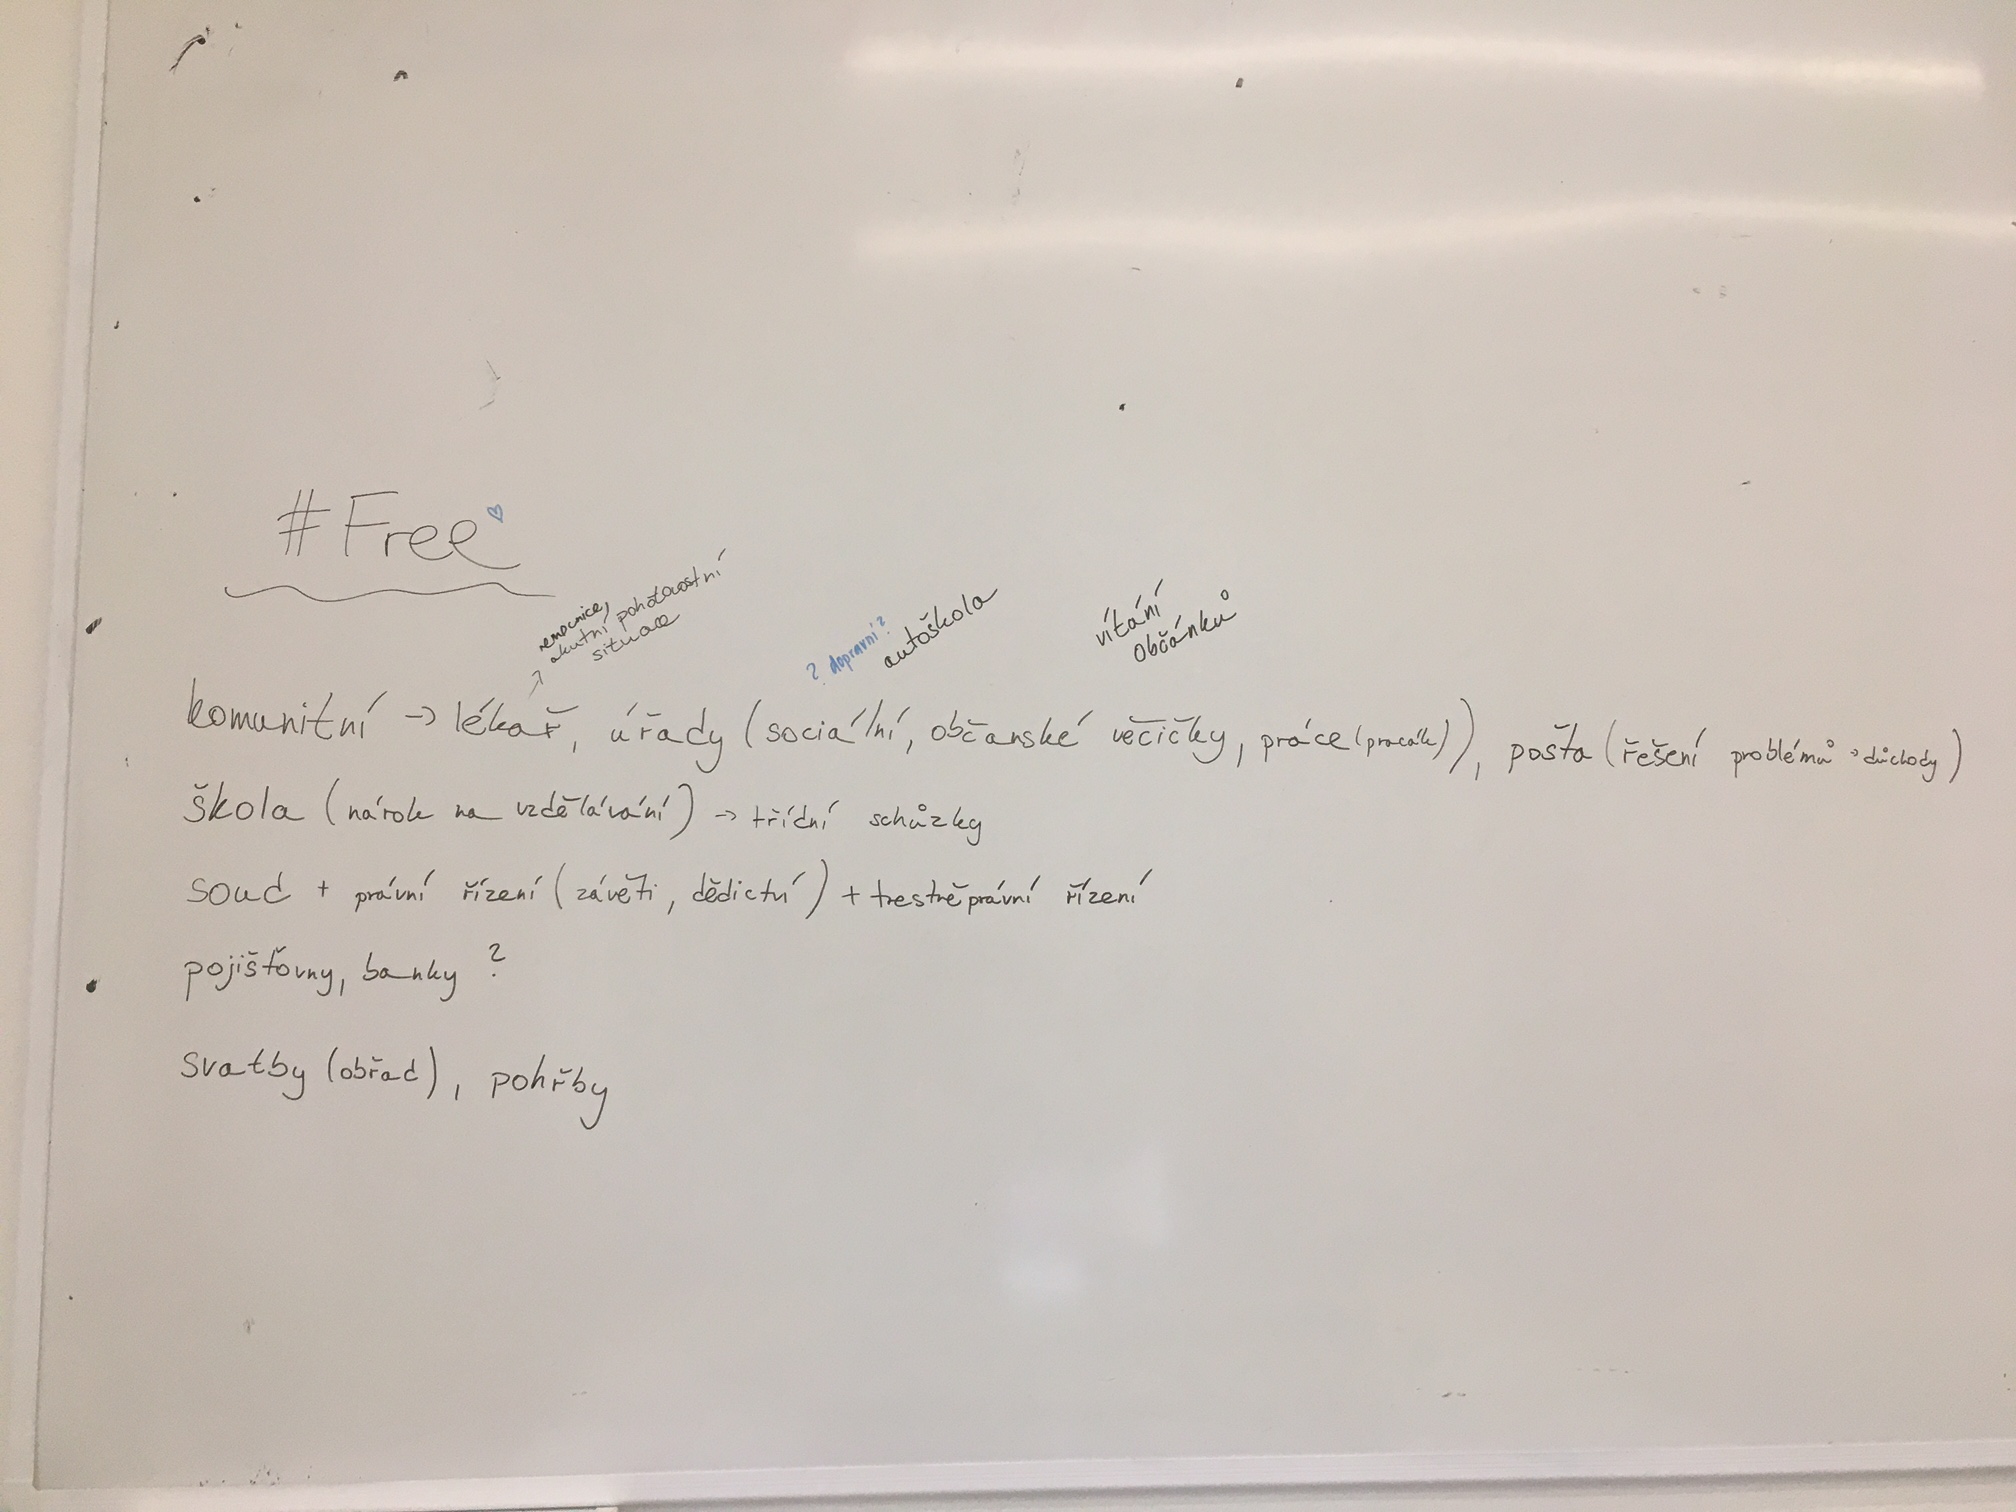 #Free♡
nemocnice,
akutní pohotovostní
situace
? dopravní?
autoškola
vítání
občánků
komunitní → lékař, úřady (sociální, občanské věcičky, práce (pracák)), pošta (řešení problémů → důchody)
škola (nárok na vzdělávání) → třídní schůzky
soud + právní řízení (závěti, dědictví) + trestněprávní řízení
pojišťovny, banky ?
svatby (obřad), pohřby